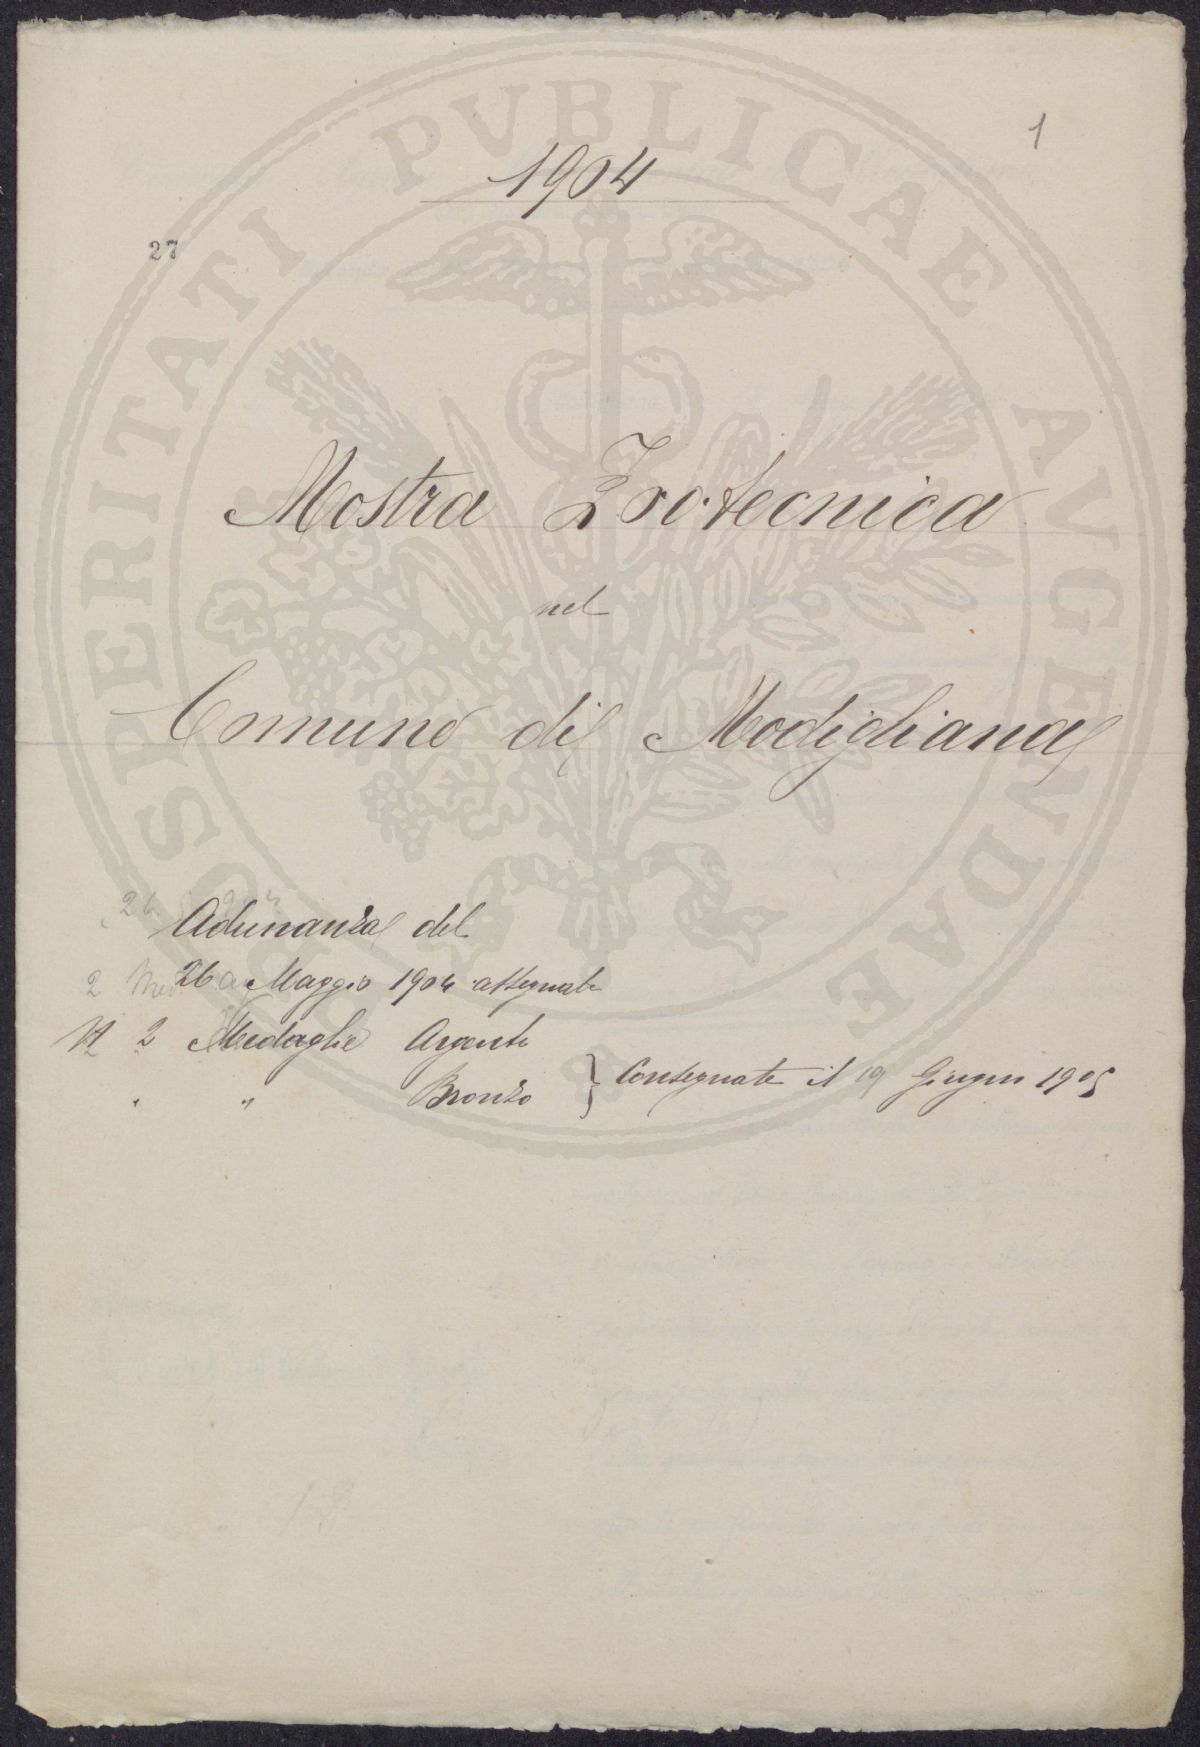 1
1904
27
Mostra Zootecnica
nel
Comune di Modigliana
Adunanza del
26 Maggio 1904 assegnate
N 2 Medaglie Argento
" " Bronzo } Consegnate il 19 Giugno 1905
PROSPERITATI PVBLICAE AVGENDAE